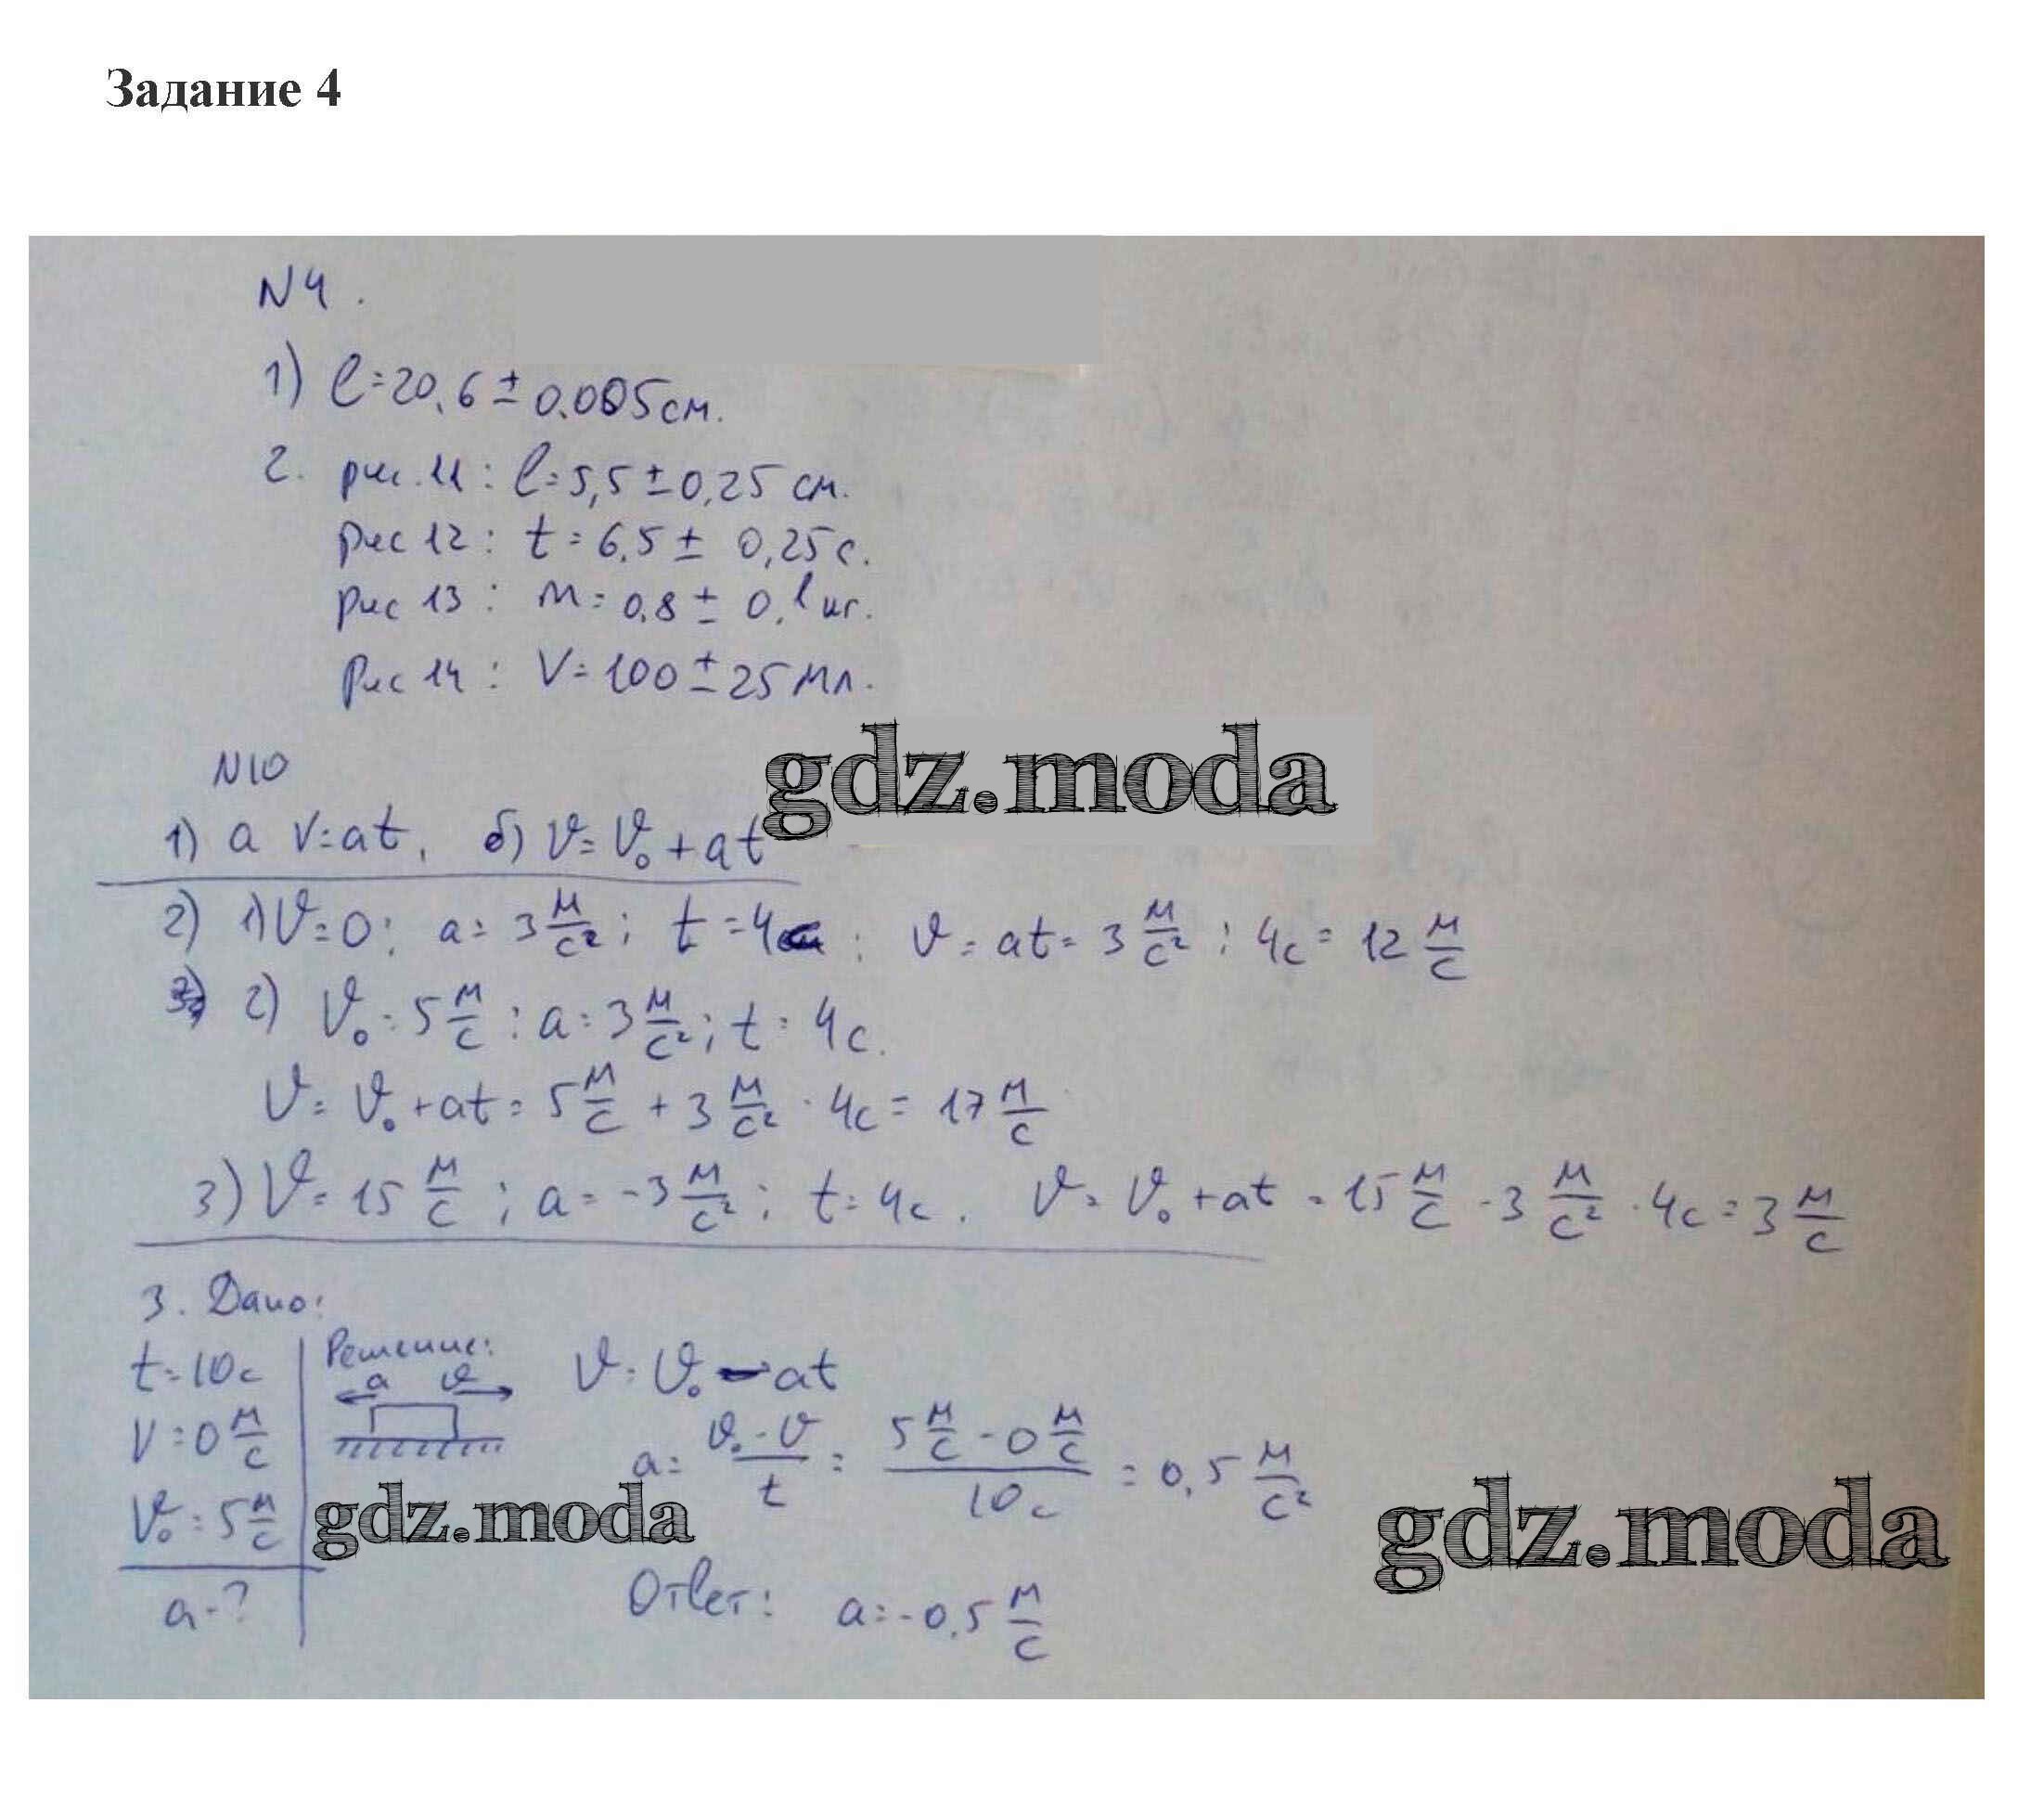 Задание 4
N4.
1) l=20,6 ± 0.005см.
2. рис.11: l=5,5 ± 0,25 см.
рис 12: t = 6,5 ± 0,25с.
рис 13: m = 0,8 ± 0,1 кг.
Рис 14: V = 100 ± 25 мл.
gdz.moda
N10
1) а V=at, б) v = v₀ + at
2) 1) v=0; a=3 м/с²; t=4 ; v = at = 3 м/с² ; 4с = 12 м/с
2) v₀ = 5 м/с; a = 3 м/с²; t = 4с.
v = v₀ + at = 5 м/с + 3 м/с² · 4с = 17 м/с
3) v = 15 м/с; a = -3 м/с²; t = 4с. v = v₀ + at = 15 м/с - 3 м/с² · 4с = 3 м/с
3. Дано:
t=10с
V=0 м/с
v₀=5 м/с
a-?
Решение:
a v
v = v₀ - at
a = v₀ - v / t = 5 м/с - 0 м/с / 10с = 0,5 м/с²
gdz.moda
gdz.moda
Ответ: a=-0,5 м/с